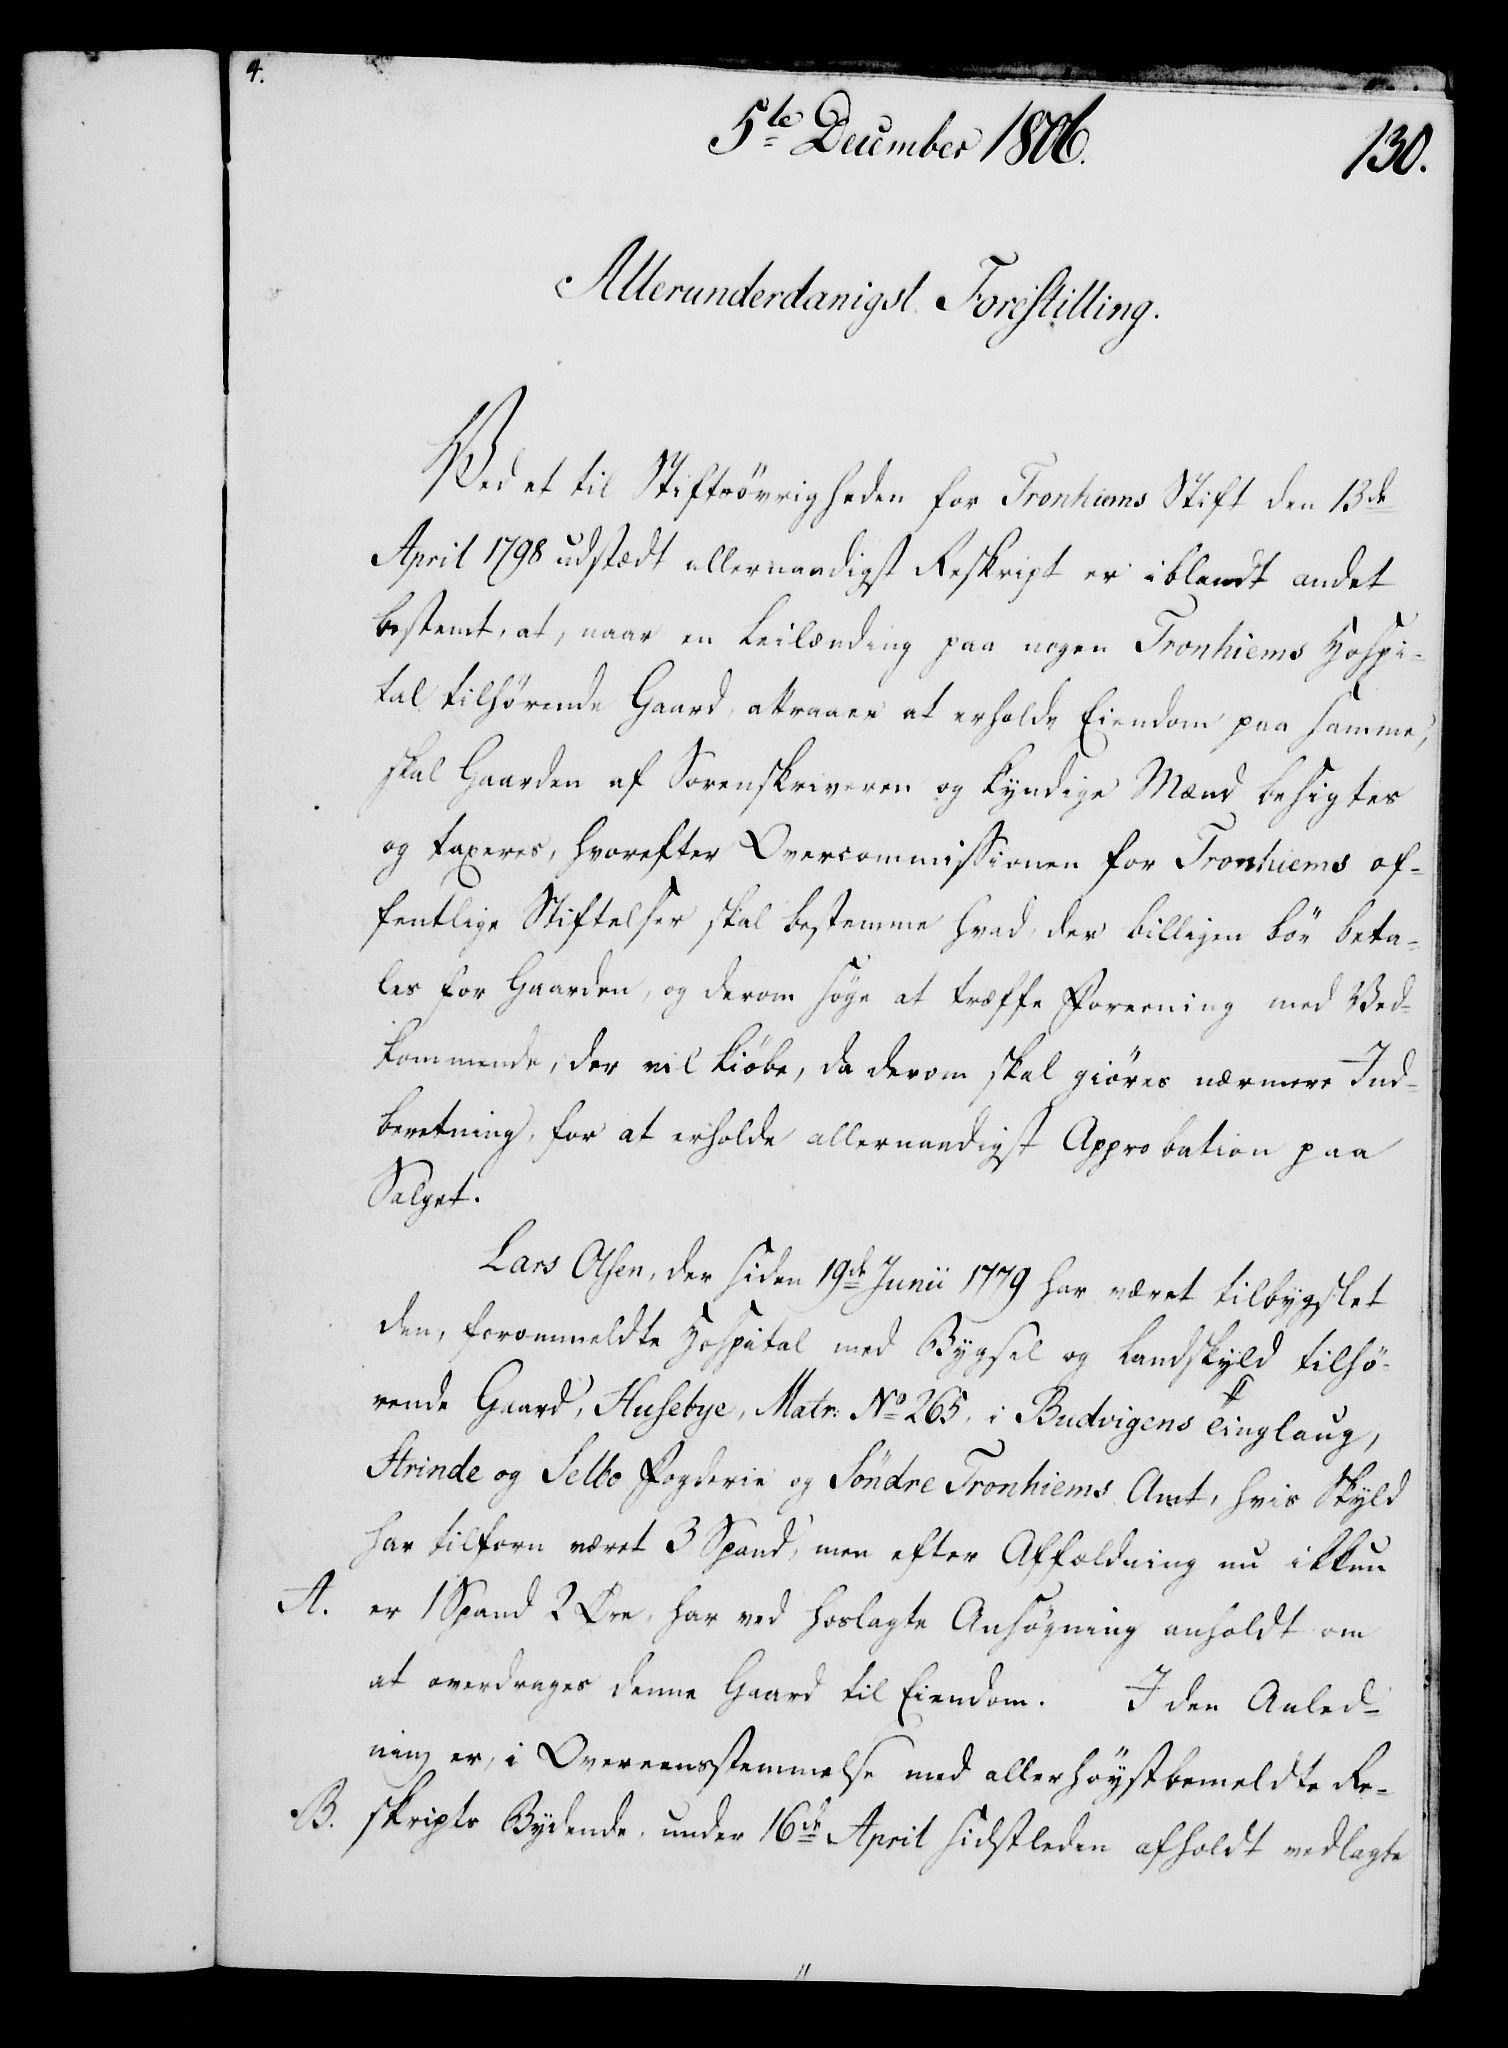 4.
5te December 1806.
130.
Allerunderdanigst Forestilling.
Ved et til Stiftsövrigheden for Tronhiems Stift den 13de
April 1798 udstædt allernaadigst Reskript er iblandt andet
bestemt, at, naar en Leilænding paa nogen Tronhiems Hospi-
tal tilhørende Gaard, attraaer at erholde Eiendom paa samme,
skal Gaarden af Sorenskriveren og kyndige Mænd besigtes
og taxeres, hvorefter Overcommissionen for Tronhiems of-
fentlige Stiftelser skal bestemme hvad der billigen bör beta-
les for Gaarden, og derom söge at træffe Foreening med Ved-
kommende, der vil kiöbe, da derom skal giöres nærmere Ind-
beretning, for at erholde allernaadigst Approbation paa
Salget.
Lars Olsen, der siden 19de Junii 1779 har været tilbygslet
den, forommeldte Hospital med Bygsel og Landskyld tilhö-
rende Gaard, Husebye, Matr: No 265, i Budvigens Tinglaug,
Strinde og Selbo Fogderie og Söndre Tronhiems Amt, hvis Skyld
har tilforn været 3 Spand, men efter Affældning nu ikkun
A. er 1 Spand 2 Øre, har ved hoslagte Ansögning anholdt om
at overdrages denne Gaard til Eiendom. I den Anled-
ning er, i Overeensstemmelse med allerhöystbemeldte Re-
B. skripts Bydende, under 16de April sidstleden afholdt vedlagte